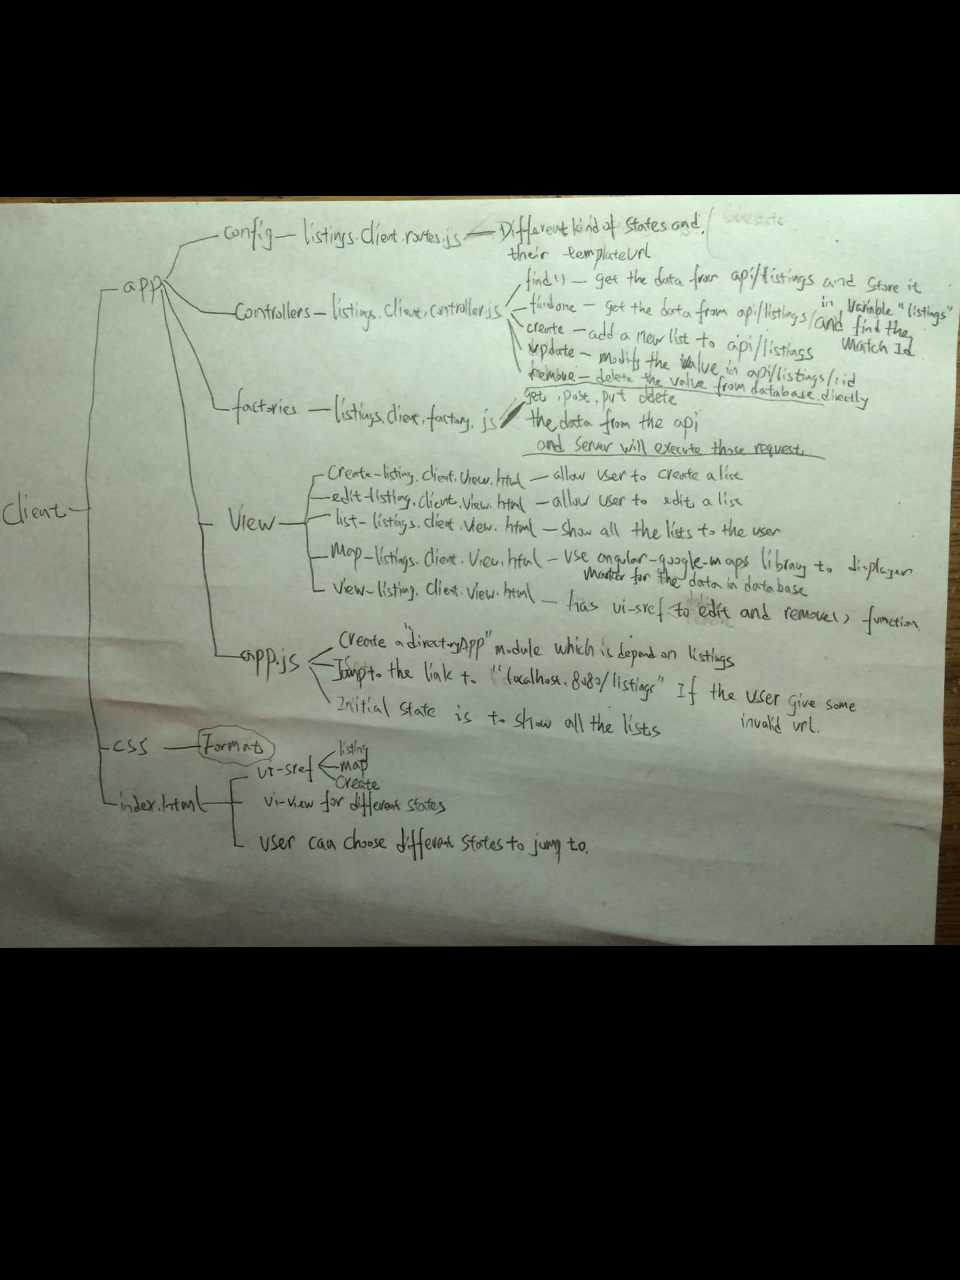 config - listings.client.routes.js - Different kind of states and
their templateUrl
app
find() - get the data from api/listings and store it
in variable "listings"
Controllers - listings.client.controller.js
findone - get the data from api/listings/and find the
Match Id
create - add a new list to api/listings
update - modify the value in api/listings/:id
remove - delete the value from database directly
factories - listings.client.factory.js
get, post, put delete
the data from the api
and server will execute those request.
Client
View
Create-listing.client.view.html - allow user to create a list
edit-listing.client.view.html - allow user to edit a list
list-listings.client.view.html - show all the lists to the user
Map-listings.client.view.html - use angular-google-maps library to
marker for the data in database
View-listing.client.view.html - has ui-sref to edit and remove() function
app.js
Create a "directoryApp" module which is depend on listings
Jump to the link to "localhost.8080/listings" If the user give some
invalid url.
Initial state is to show all the lists
css - Formats
index.html
ui-sref
listing
map
Create
ui-view for different states
user can choose different states to jump to.